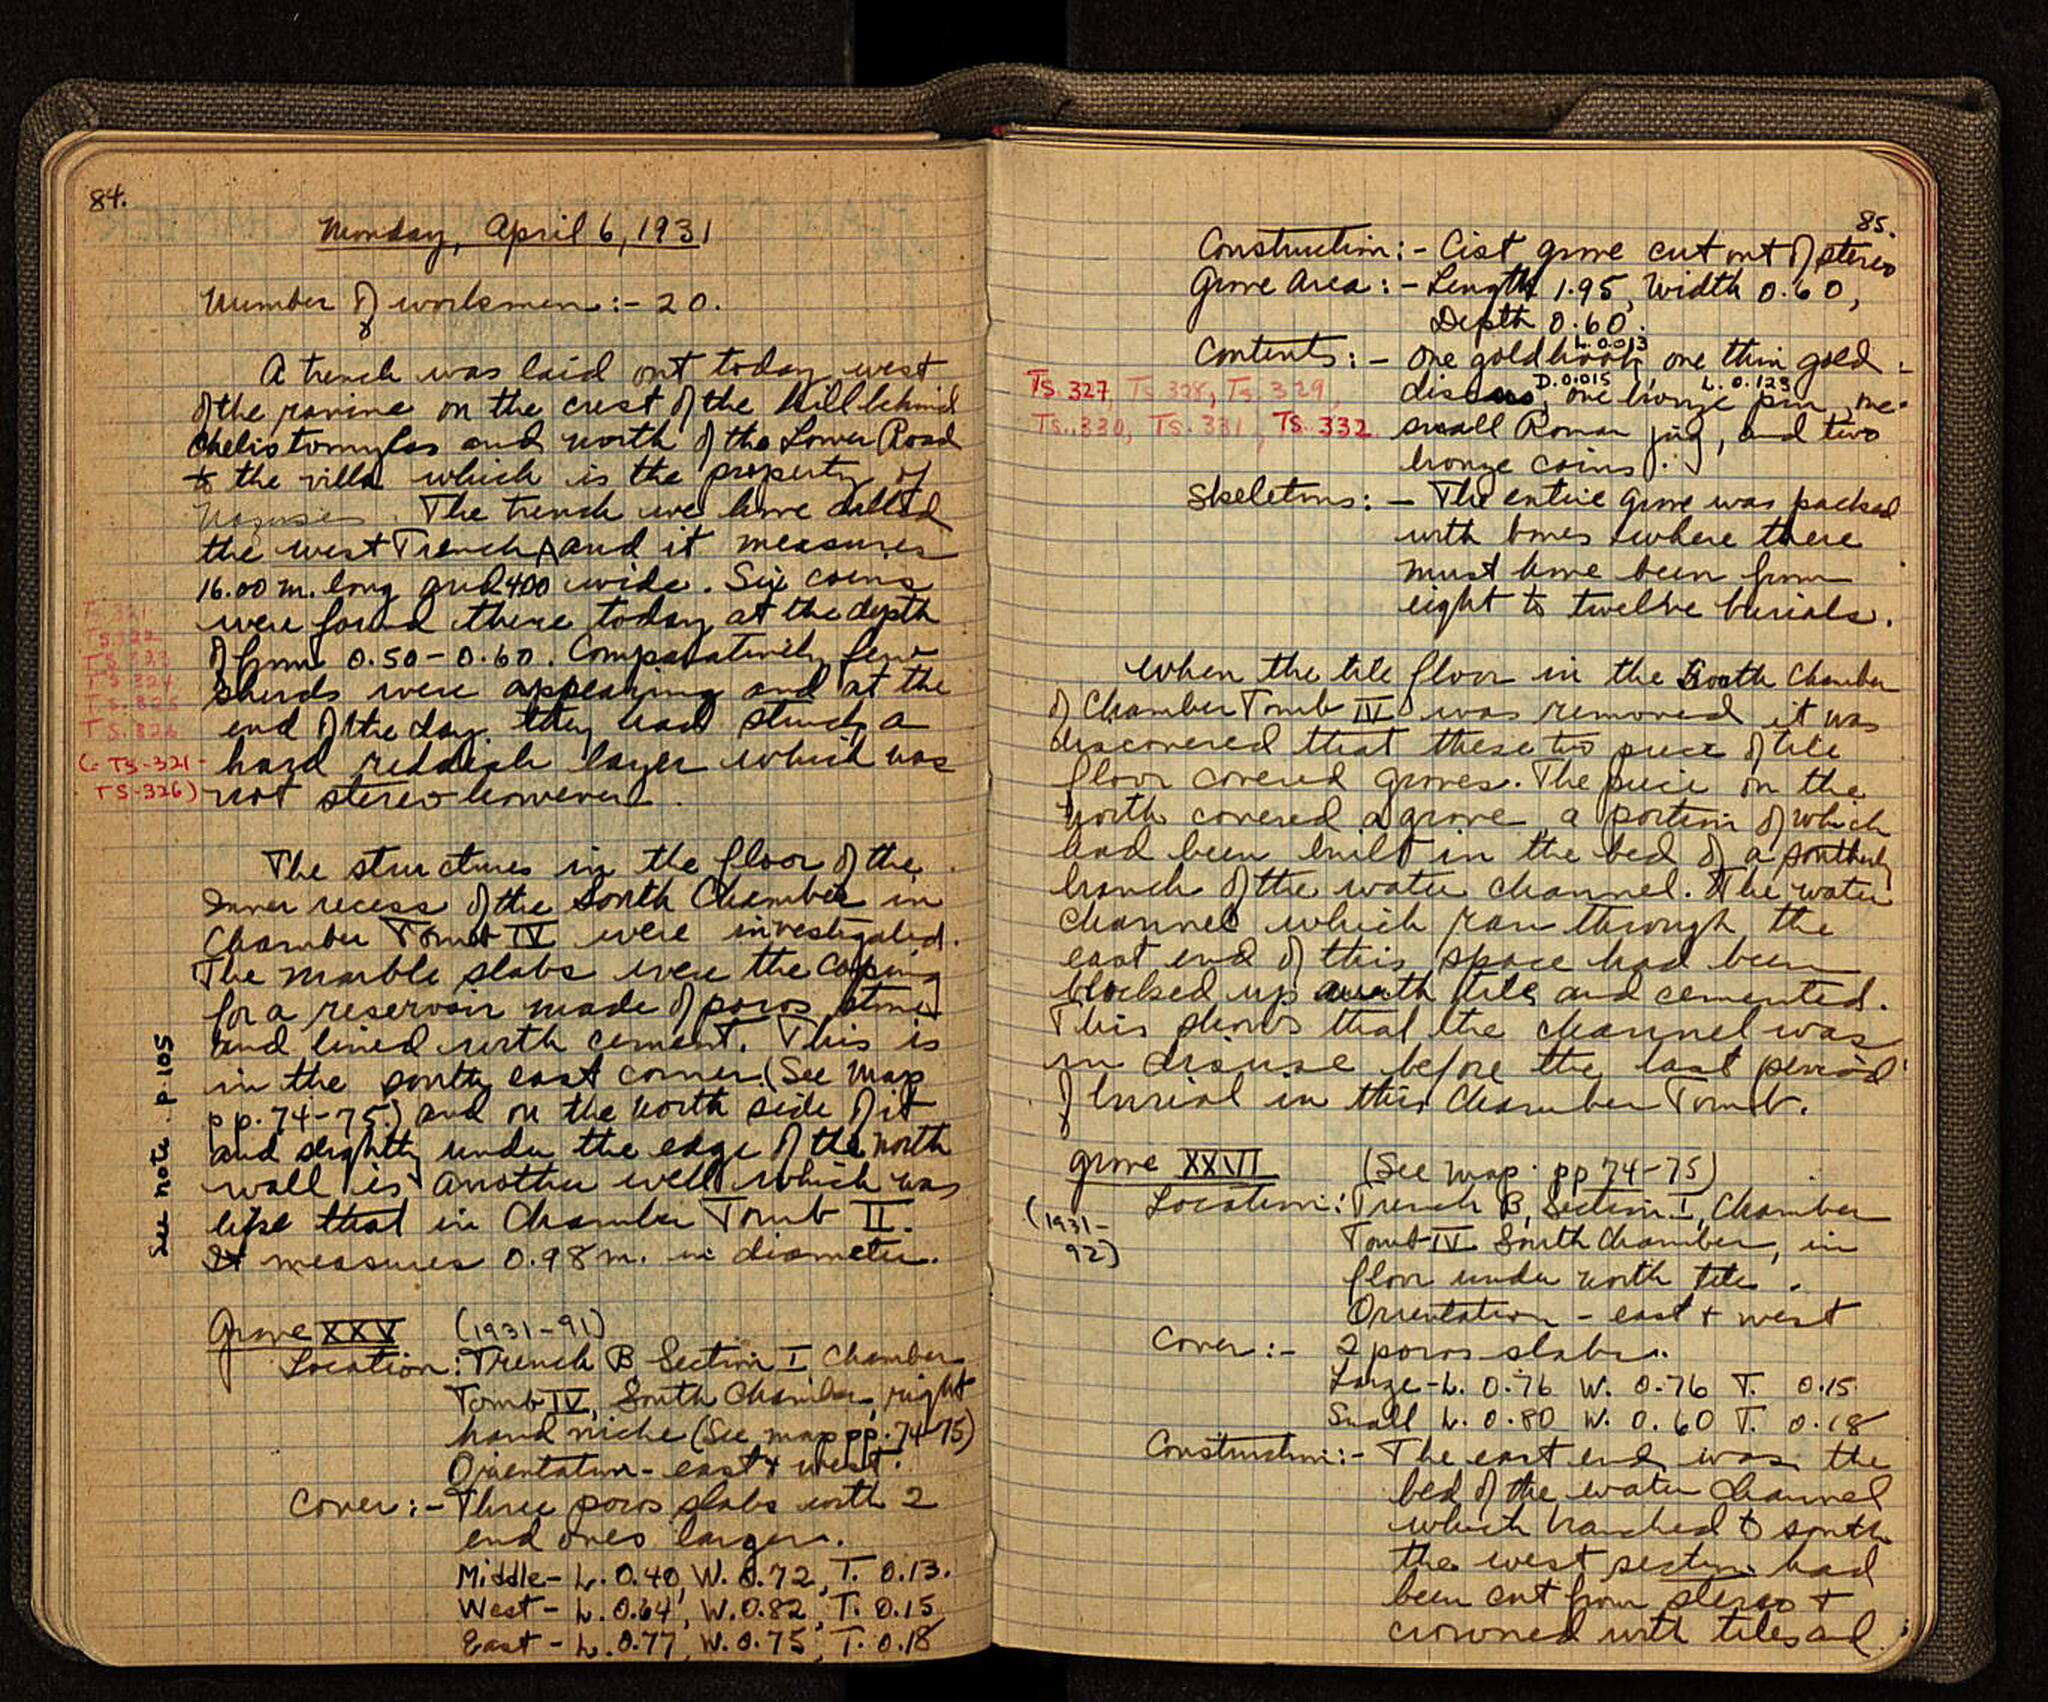 84.
Monday, April 6, 1931
Number of workmen:- 20.
A trench was laid out today west
of the ravine on the crest of the hill behind
Cheliotomylos and north of the Lower Road
to the villa which is the property of
. The trench we have called
the west Trench A and it measures
16.00 m. long and 400 wide. Six coins
were found there today at the depth
of from 0.50-0.60. Comparatively few
sherds were appearing and at the
end of the day they had struck a
hard reddish layer which was
not stereo however.
TS. 321
TS. 322
TS 323
TS 324
TS. 325
TS. 326
(= TS-321-
TS-326)
The structures in the floor of the
Inner recess of the South Chamber in
Chamber Tomb IV were investigated.
The marble slabs were the coping
for a reservoir made of poros stone
and lined with cement. This is
in the south east corner (See Map
pp. 74-75) and on the north side of it
and slightly under the edge of the north
wall is another well which was
like that in Chamber Tomb II.
It measures 0.98 m. in diameter.
See note p. 105
Grave XXV (1931-91)
Location: Trench B, Section I Chamber
Tomb IV, South Chamber, right
hand niche (See map pp. 74-75)
Orientation - east & west.
Cover:- Three poros slabs with 2
end ones larger.
Middle- L. 0.40, W. 0.72, T. 0.13.
West - L. 0.64, W. 0.82, T. 0.15
East - L. 0.77, W. 0.75, T. 0.18
85.
Construction:- Cist grave cut out of stereo
Grave Area:- Length 1.95, Width 0.60,
Depth 0.60.
L. 0.013
Contents:- One gold hook, one thin gold
D. 0.015 L. 0.123
disc, one bronze pin, one
small Roman jug, and two
bronze coins.
TS. 327, TS 328, TS. 329,
TS. 330, TS. 331, TS. 332
Skeletons:- The entire grave was packed
with bones where there
must have been from
eight to twelve burials.
When the tile floor in the South Chamber
of Chamber Tomb IV was removed it was
discovered that these two piece of tile
floor covered graves. The piece on the
north covered a grave a portion of which
had been built in the bed of a southerly
branch of the water channel. The water
channel which ran through the
east end of this space had been
blocked up with tile and cemented.
This shows that the channel was
in disuse before the last period
of burial in this Chamber Tomb.
Grave XXVI (See map pp 74-75)
(1931-
92)
Location: Trench B, Section I, Chamber
Tomb IV South Chamber, in
floor under north tile.
Orientation - east & west
Cover:- 2 poros slabs.
Large - L. 0.76 W. 0.76 T. 0.15
Small L. 0.80 W. 0.60 T. 0.18
Construction:- The east end was the
bed of the water channel
which branched to south
the west section had
been cut from stereo &
crowned with tiles and